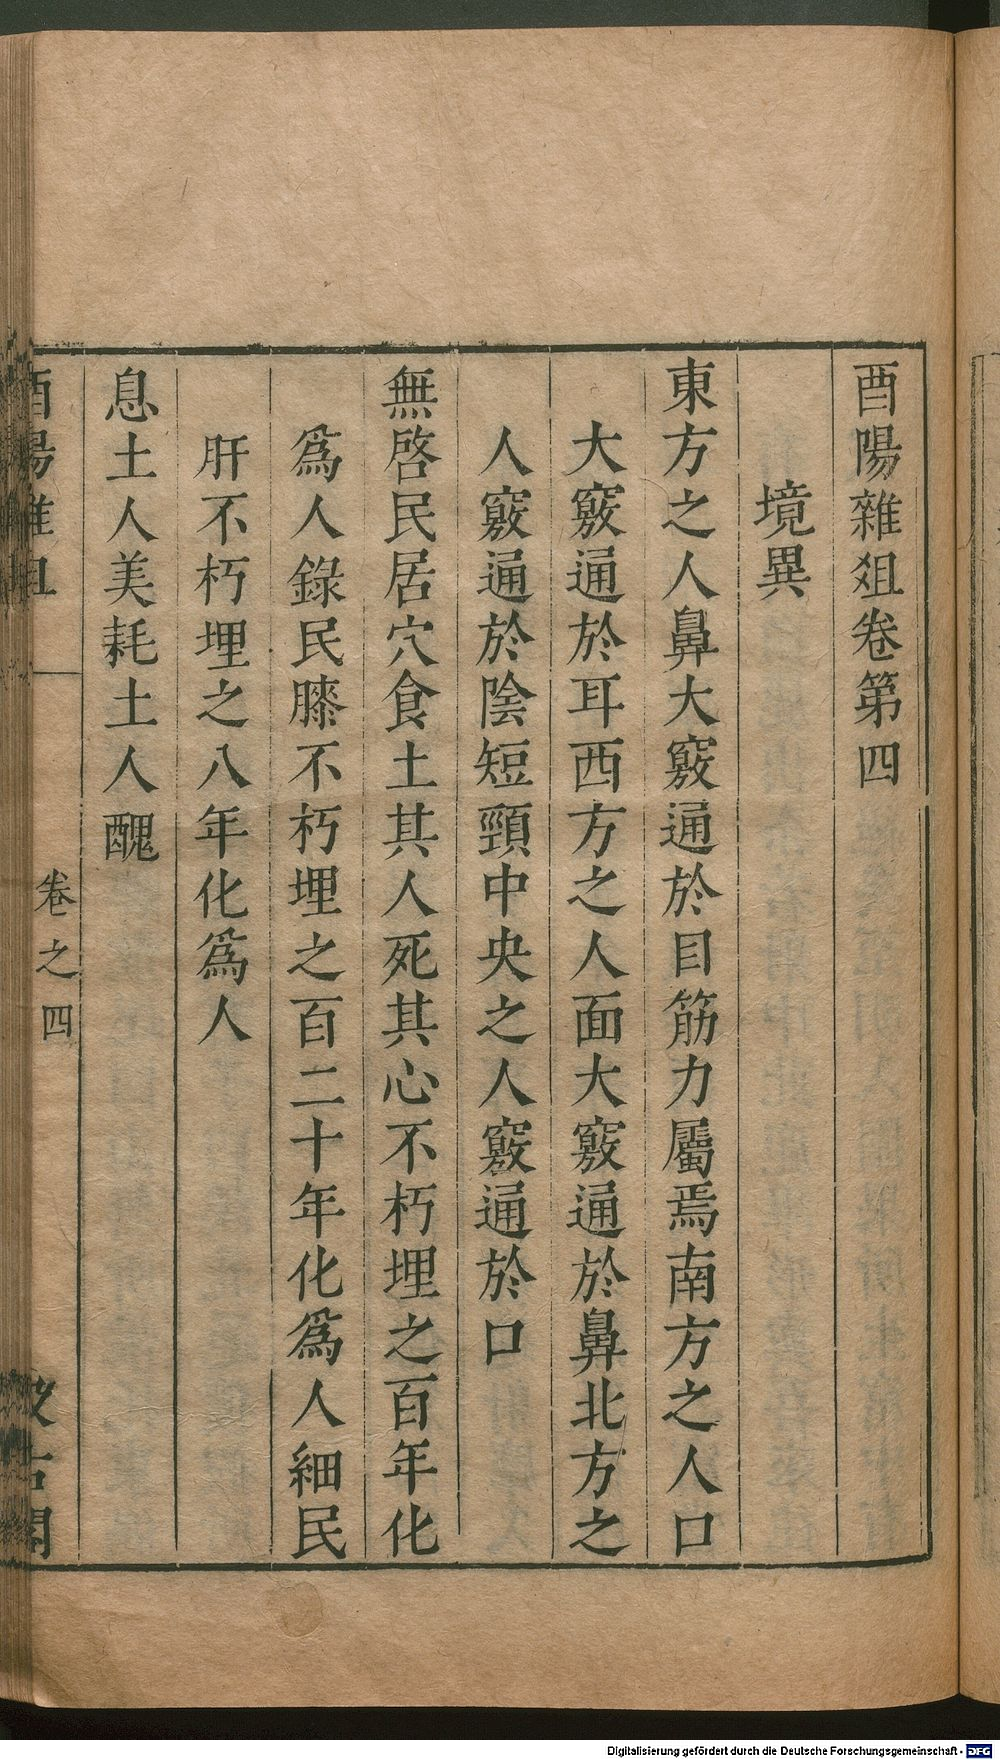 酉陽雜俎卷第四
境異
東方之人鼻大竅通於目筋力屬焉南方之人口
大竅通於耳西方之人面大竅通於鼻北方之
人竅通於陰短頸中央之人竅通於口
無啓民居穴食土其人死其心不朽埋之百年化
爲人錄民膝不朽埋之百二十年化爲人細民
肝不朽埋之八年化爲人
息土人美耗土人醜
酉陽雜俎 卷之四 汲古閣
Digitalisierung gefördert durch die Deutsche Forschungsgemeinschaft - DFG